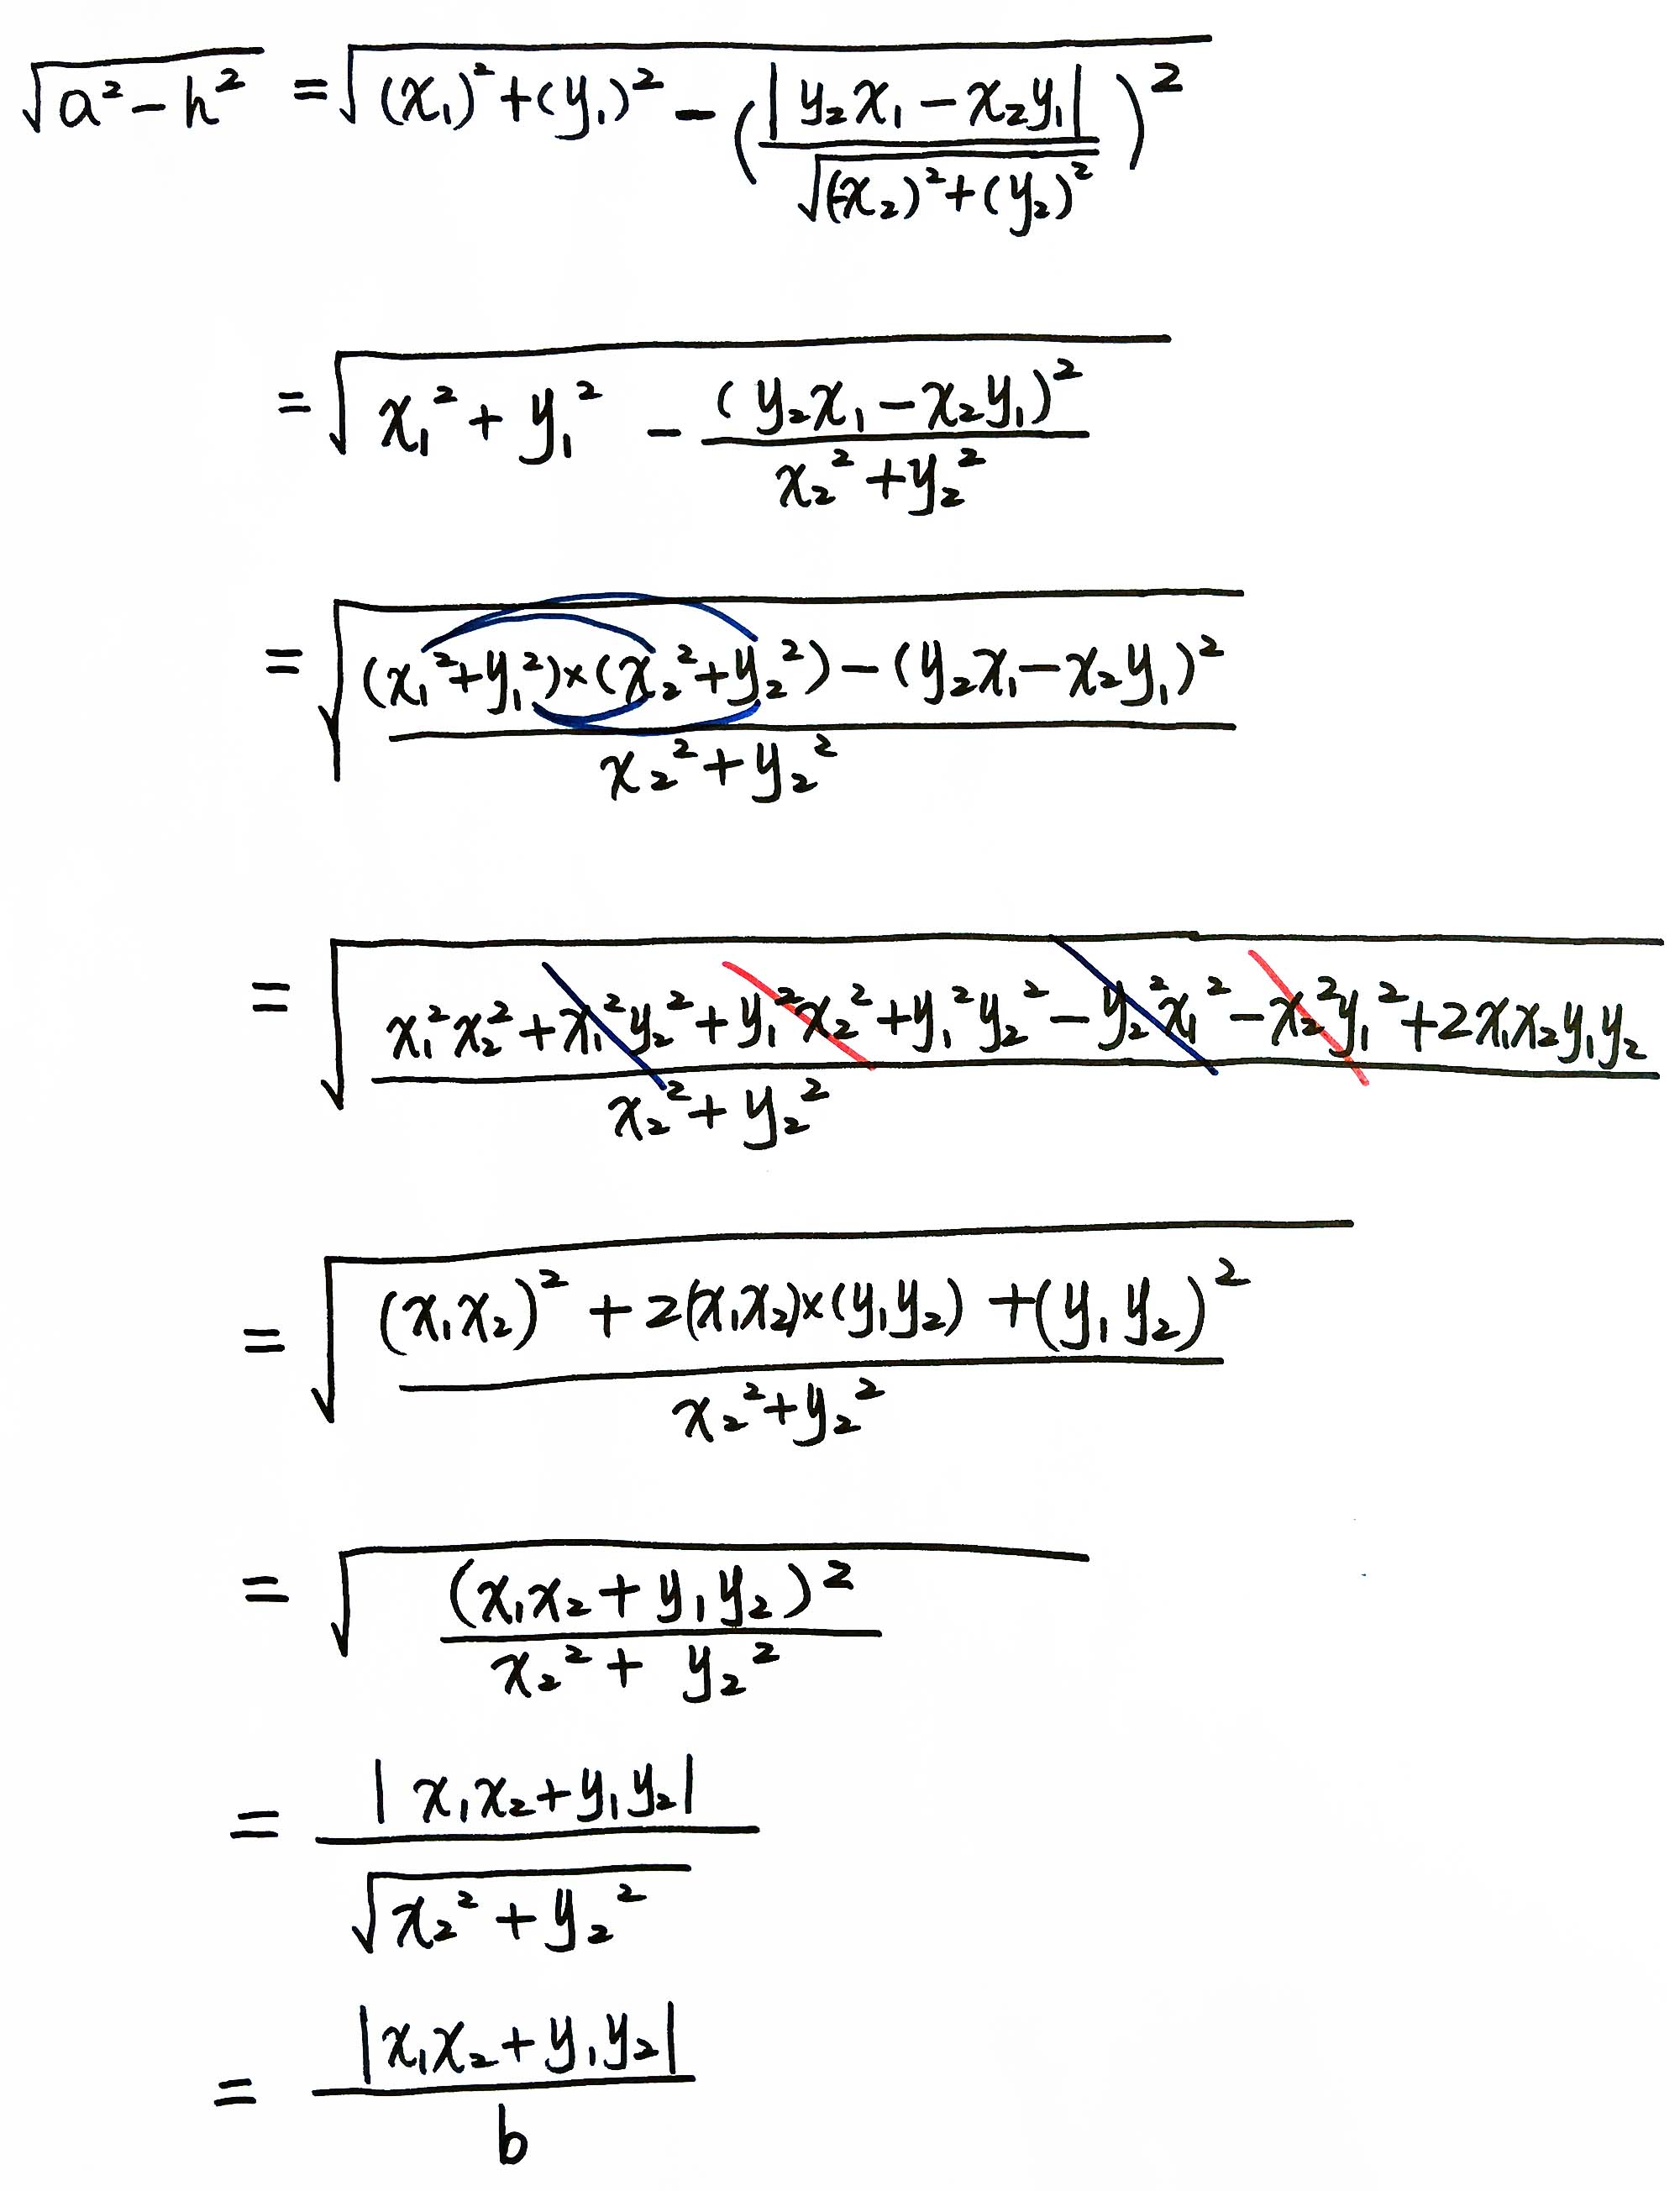 √(a² − h²) = √((x₁)² + (y₁)² − (|y₂x₁ − x₂y₁| / √((-x₂)² + (y₂)²))²)
= √(x₁² + y₁² − (y₂x₁ − x₂y₁)² / (x₂² + y₂²))
= √(((x₁² + y₁²) × (x₂² + y₂²) − (y₂x₁ − x₂y₁)²) / (x₂² + y₂²))
= √((x₁²x₂² + x₁²y₂² + y₁²x₂² + y₁²y₂² − y₂²x₁² − x₂²y₁² + 2x₁x₂y₁y₂) / (x₂² + y₂²))
= √(((x₁x₂)² + 2(x₁x₂) × (y₁y₂) + (y₁y₂)²) / (x₂² + y₂²))
= √((x₁x₂ + y₁y₂)² / (x₂² + y₂²))
= |x₁x₂ + y₁y₂| / √(x₂² + y₂²)
= |x₁x₂ + y₁y₂| / b